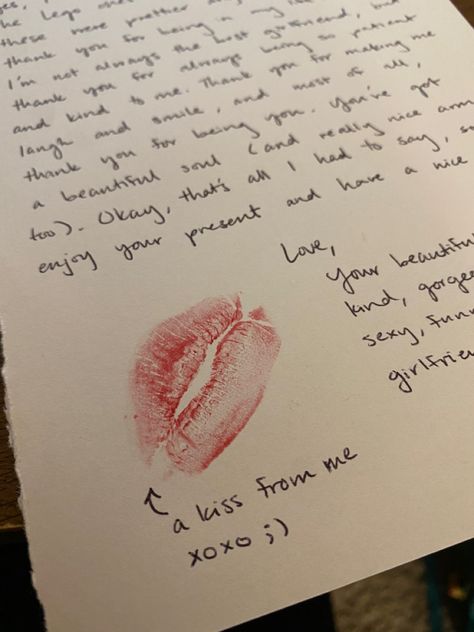 the Lego
these were pretty
thank you for being in my
I'm not always the best girlfriend, but
thank you for always being so patient
and kind to me. Thank you for making me
laugh and smile, and most of all,
thank you for being you. You've got
a beautiful soul (and really nice arms
too). Okay, that's all I had to say, so
enjoy your present and have a nice
Love,
your beautiful
kind, gorge
sexy, funn
girlfrie
a kiss from me
xoxo ;)